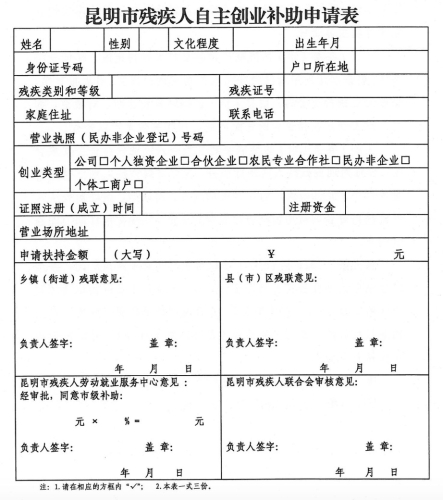 昆明市残疾人自主创业补助申请表
姓名 性别 文化程度 出生年月
身份证号码 户口所在地
残疾类别和等级 残疾证号
家庭住址 联系电话
营业执照（民办非企业登记）号码
创业类型
公司□个人独资企业□合伙企业□农民专业合作社□民办非企业□
个体工商户□
证照注册（成立）时间 注册资金
营业场所地址
申请扶持金额 （大写） ￥ 元
乡镇（街道）残联意见： 县（市）区残联意见：
负责人签字： 盖 章： 负责人签字： 盖 章：
年 月 日 年 月 日
昆明市残疾人劳动就业服务中心意见： 昆明市残疾人联合会审核意见：
经审批，同意市级补助：
元 × %= 元
负责人签字： 盖 章： 负责人签字： 盖 章：
年 月 日 年 月 日
注：1.请在相应的方框内“√”； 2.本表一式三份。